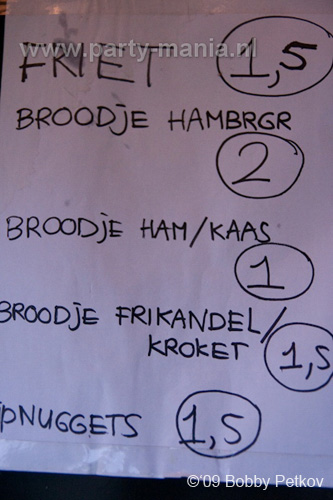 www.party-mania.nl
FRIET 1,5
BROODJE HAMBRGR
2
BROODJE HAM/KAAS
1
BROODJE FRIKANDEL/
KROKET 1,5
PNUGGETS 1,5
©'09 Bobby Petkov